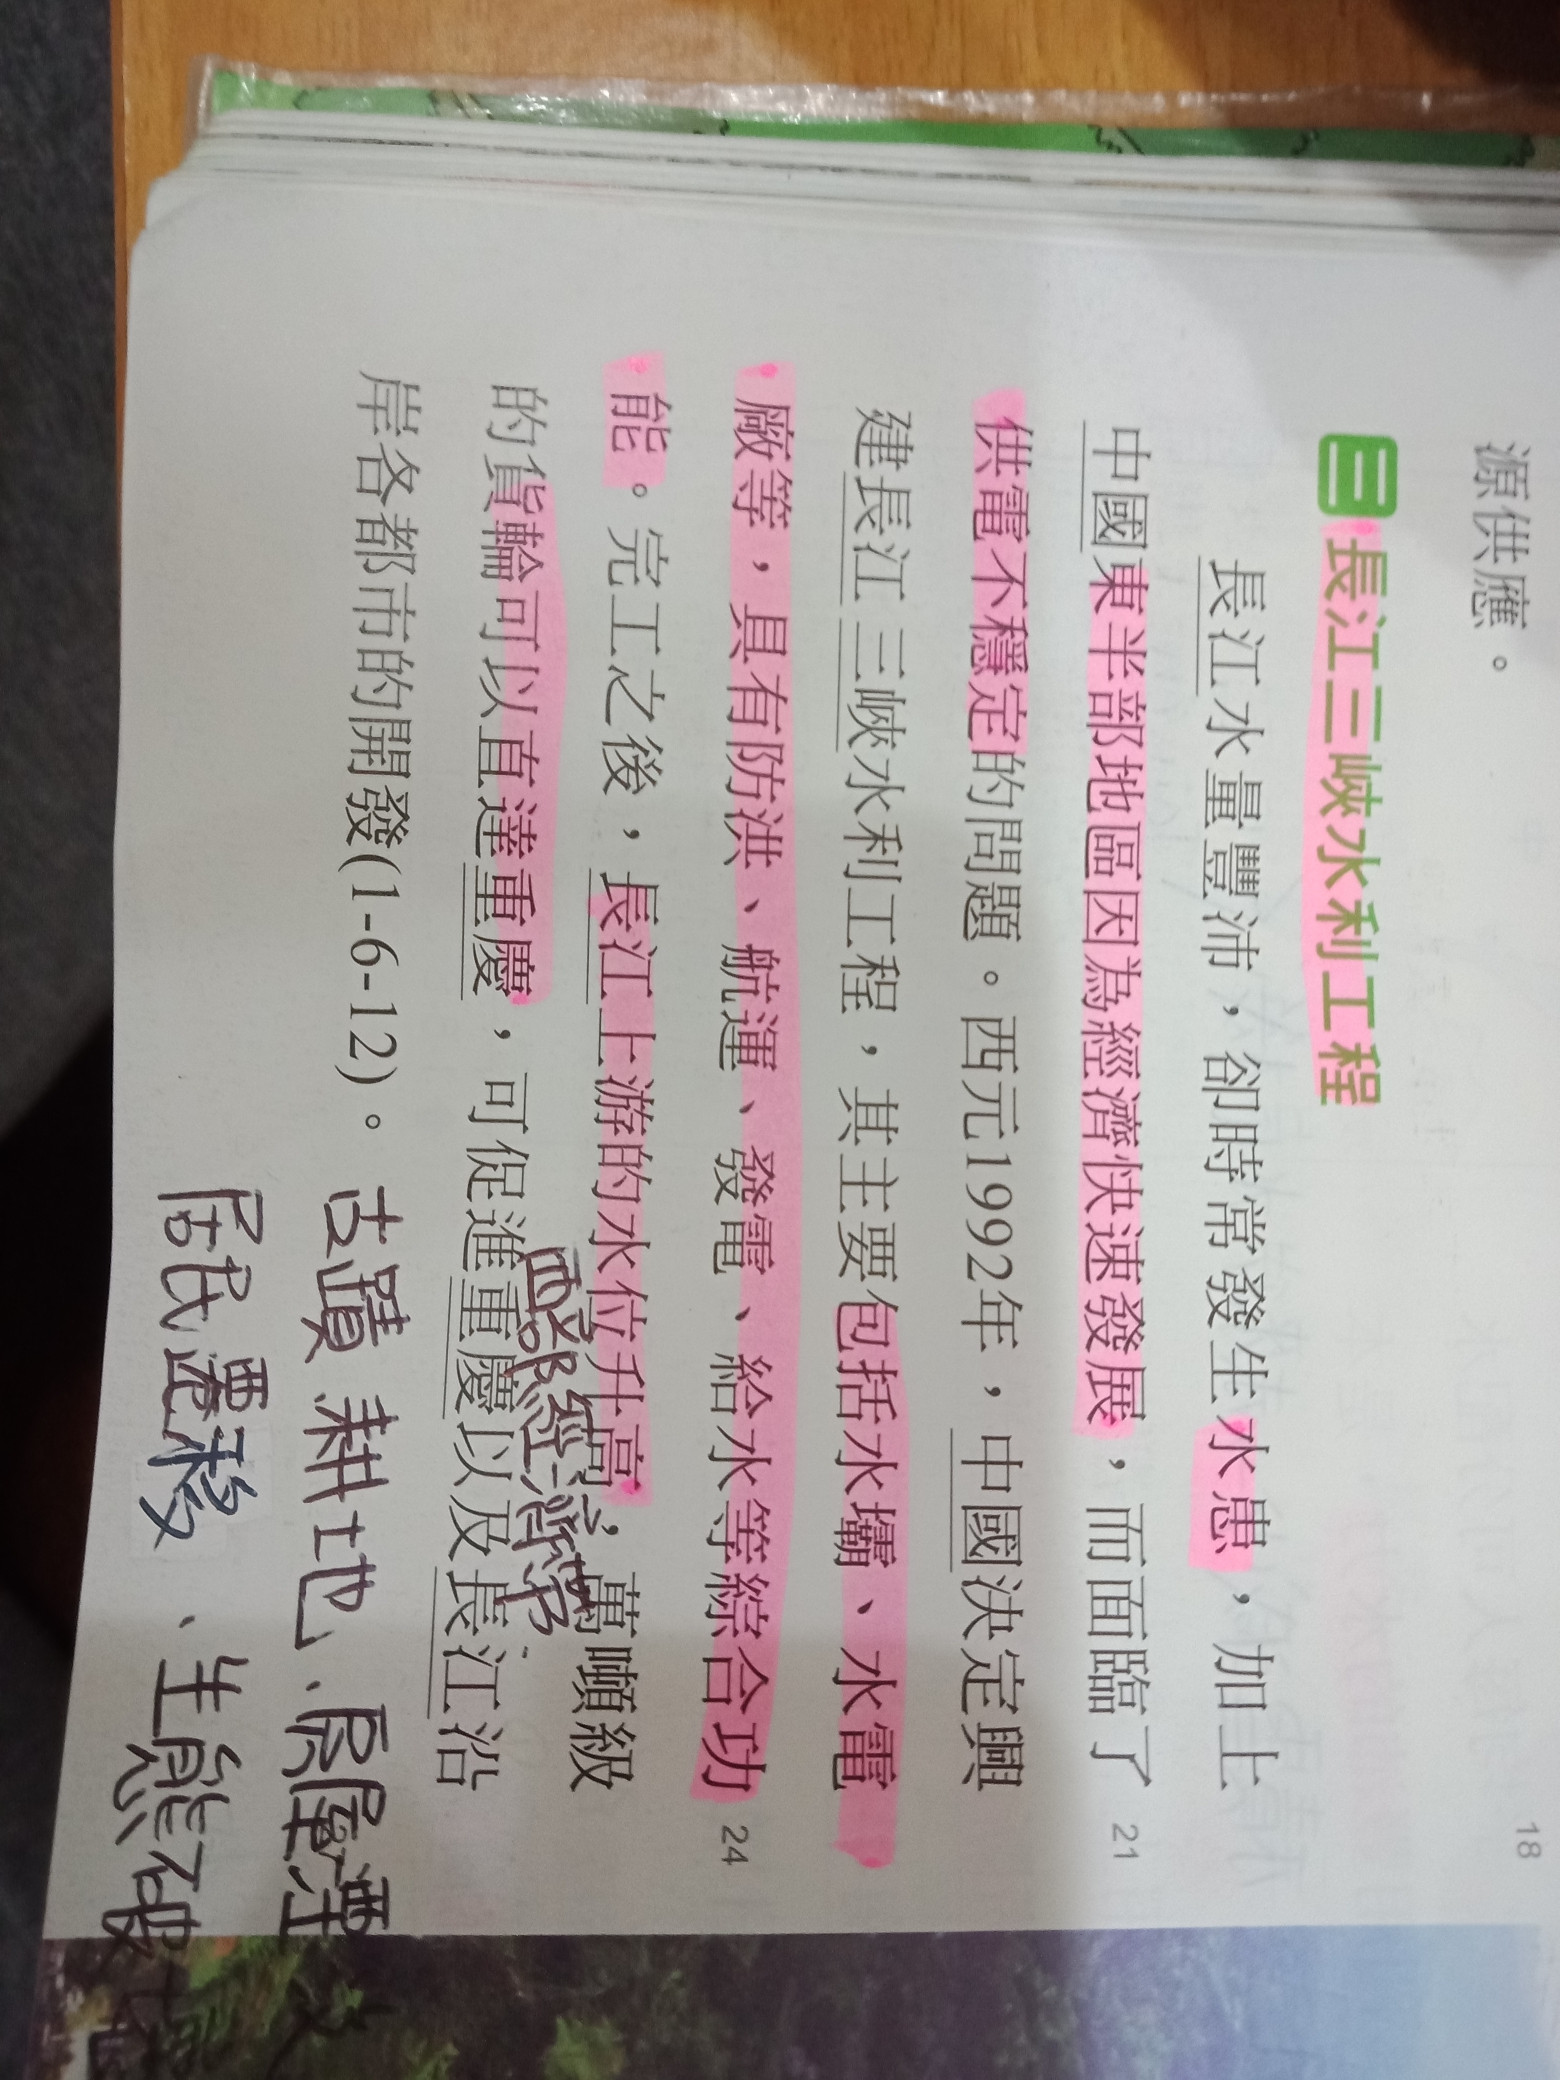 源供應。
18
三 長江三峽水利工程
長江水量豐沛，卻時常發生水患，加上
中國東半部地區因為經濟快速發展，而面臨了
21
供電不穩定的問題。西元1992年，中國決定興
建長江三峽水利工程，其主要包括水壩、水電
廠等，具有防洪、航運、發電、給水等綜合功
24
能。完工之後，長江上游的水位升高，萬噸級
西部經濟
的貨輪可以直達重慶，可促進重慶以及長江沿
岸各都市的開發(1-6-12)。
古蹟 耕地、房屋淹
居民遷移、生態破